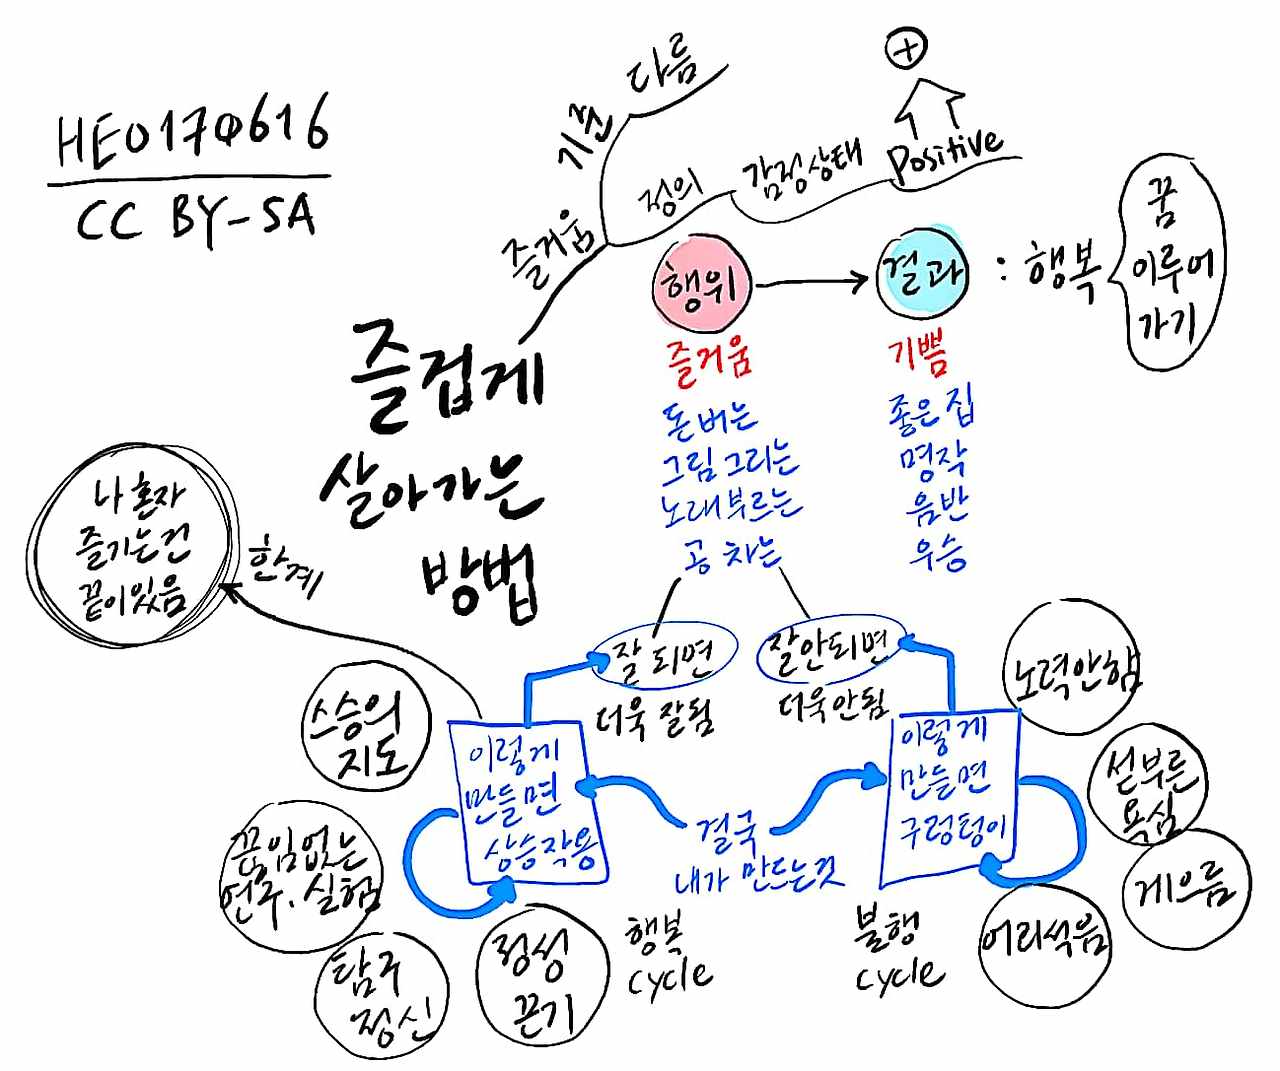 HEO170616
CC BY-SA
즐겁게
살아가는
방법
즐거움
기준
다름
정의
감정상태
Positive
+
행위
결과
: 행복
꿈
이루어
가기
즐거움
기쁨
돈 버는
좋은 집
그림 그리는
명작
노래 부르는
음반
공 차는
우승
잘 되면
더욱 잘됨
잘안되면
더욱 안됨
나 혼자
즐기는건
끝이있음
한계
이렇게
만들면
상승작용
스승의
지도
끊임없는
연구.실험
탐구
정신
정성
끈기
행복
cycle
결국
내가 만드는것
이렇게
만들면
구렁텅이
노력안함
섣부른
욕심
게으름
어리석음
불행
cycle